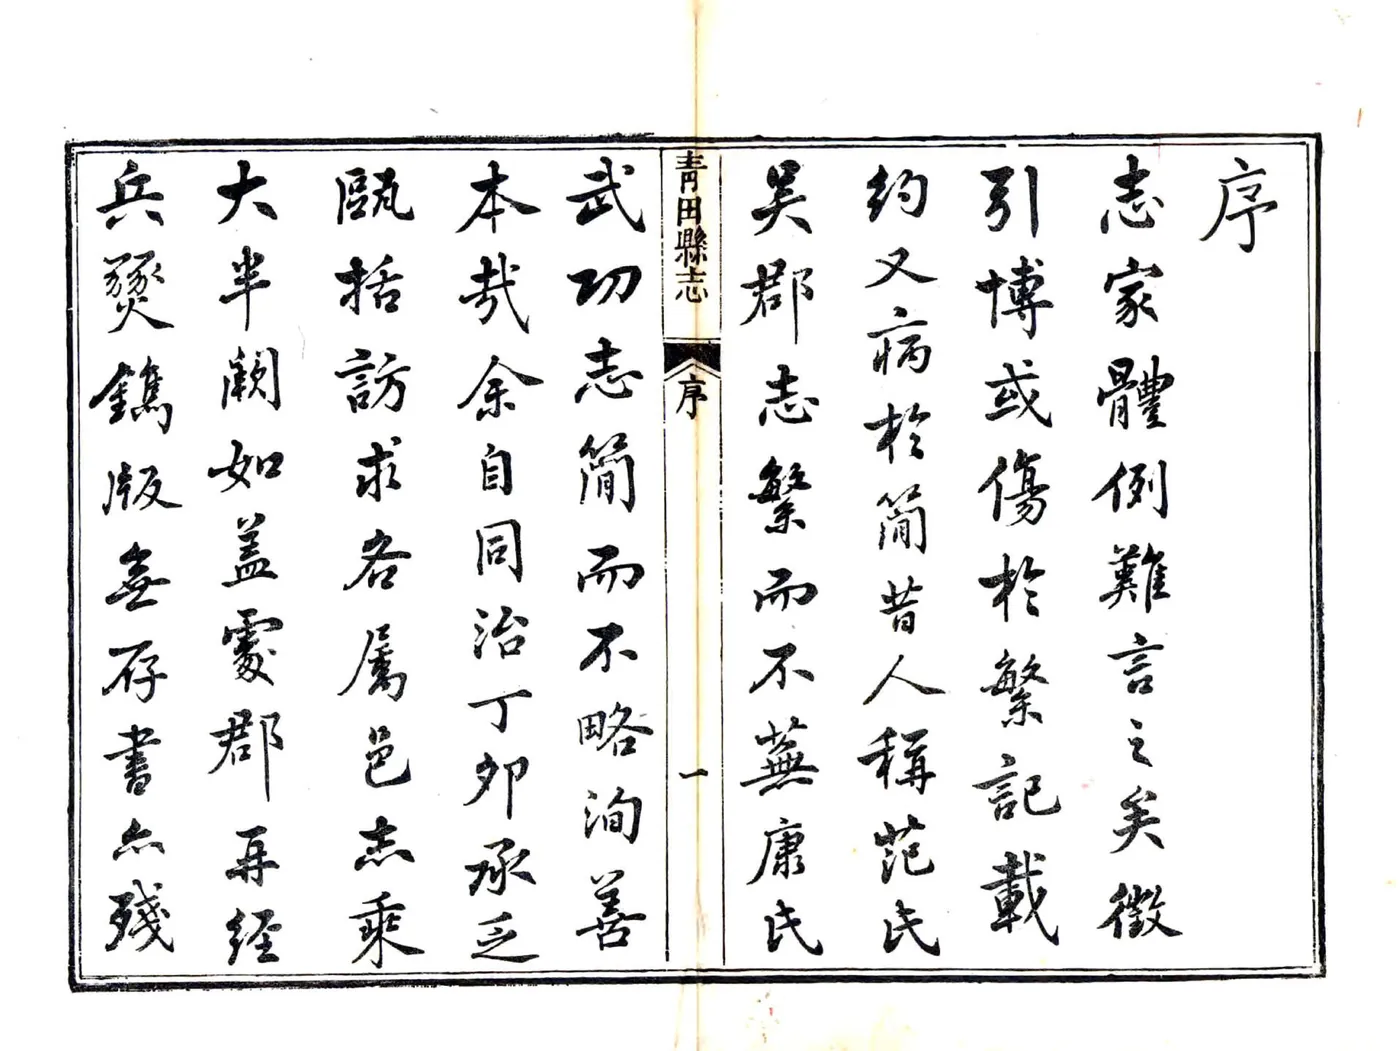 序
志家體例難言之矣徵
引博或傷於繁記載
約又病於簡昔人稱范氏
吳郡志繁而不蕪康氏
青田縣志
序
一
武功志簡而不略洵善
本哉余自同治丁卯承乏
甌括訪求各屬邑志乘
大半闕如盖處郡再經
兵燹鐫版無存書亦殘